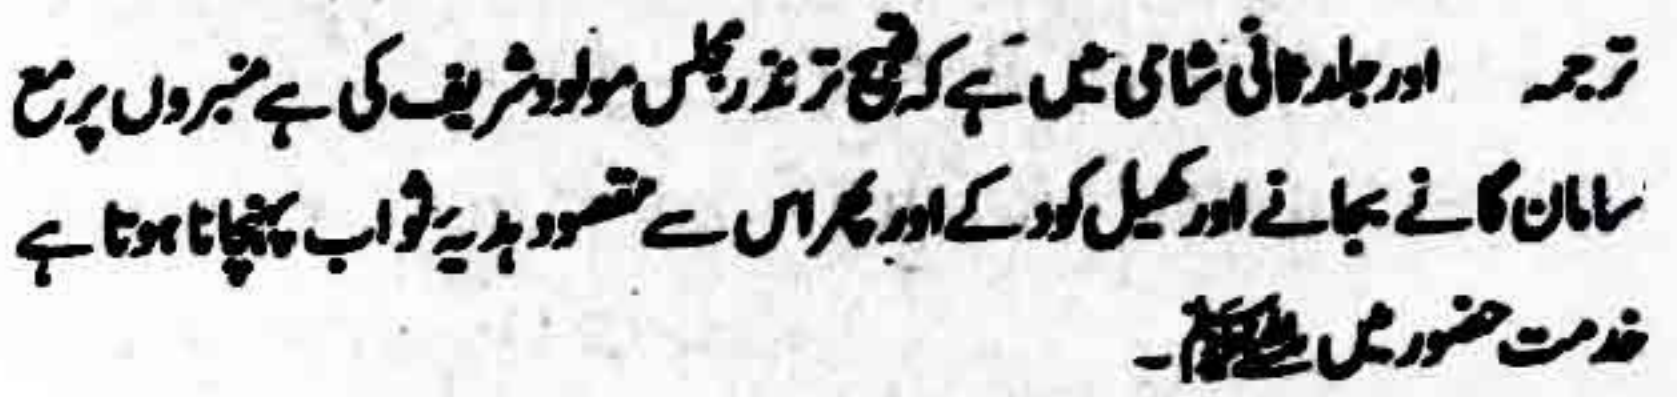 ترجمہ اور جلد ثانی شامی میں ہے کہ قبیح تر نذر مجلس مولود شریف کی ہے منبروں پر مع
سامان گانے بجانے اور کھیل کود کے اور پھر اس سے مقصود ہدیۂ ثواب پہنچانا ہوتا ہے
خدمت حضور میں ﷺ۔